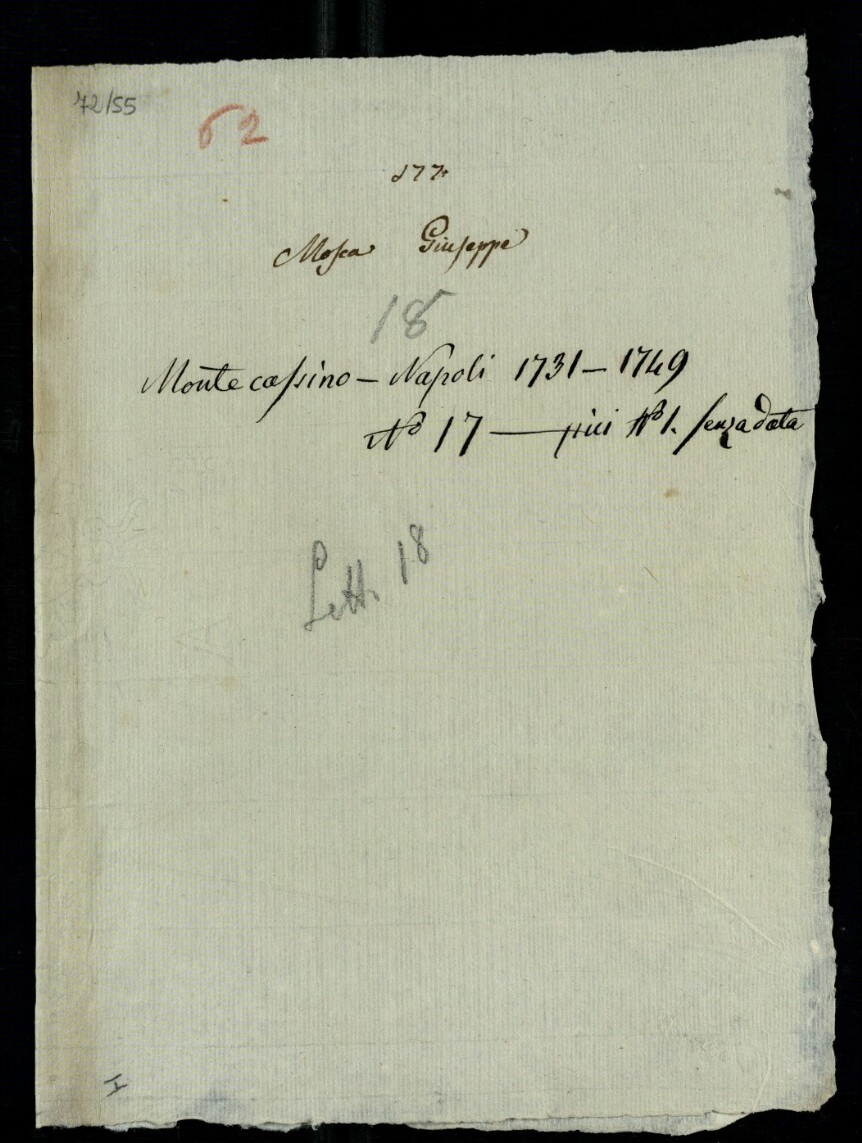 72/55
62
577.
Mosca Giuseppe
18
Montecassino – Napoli 1731 – 1749
No 17 — più No 1. senza data
Lett. 18
I